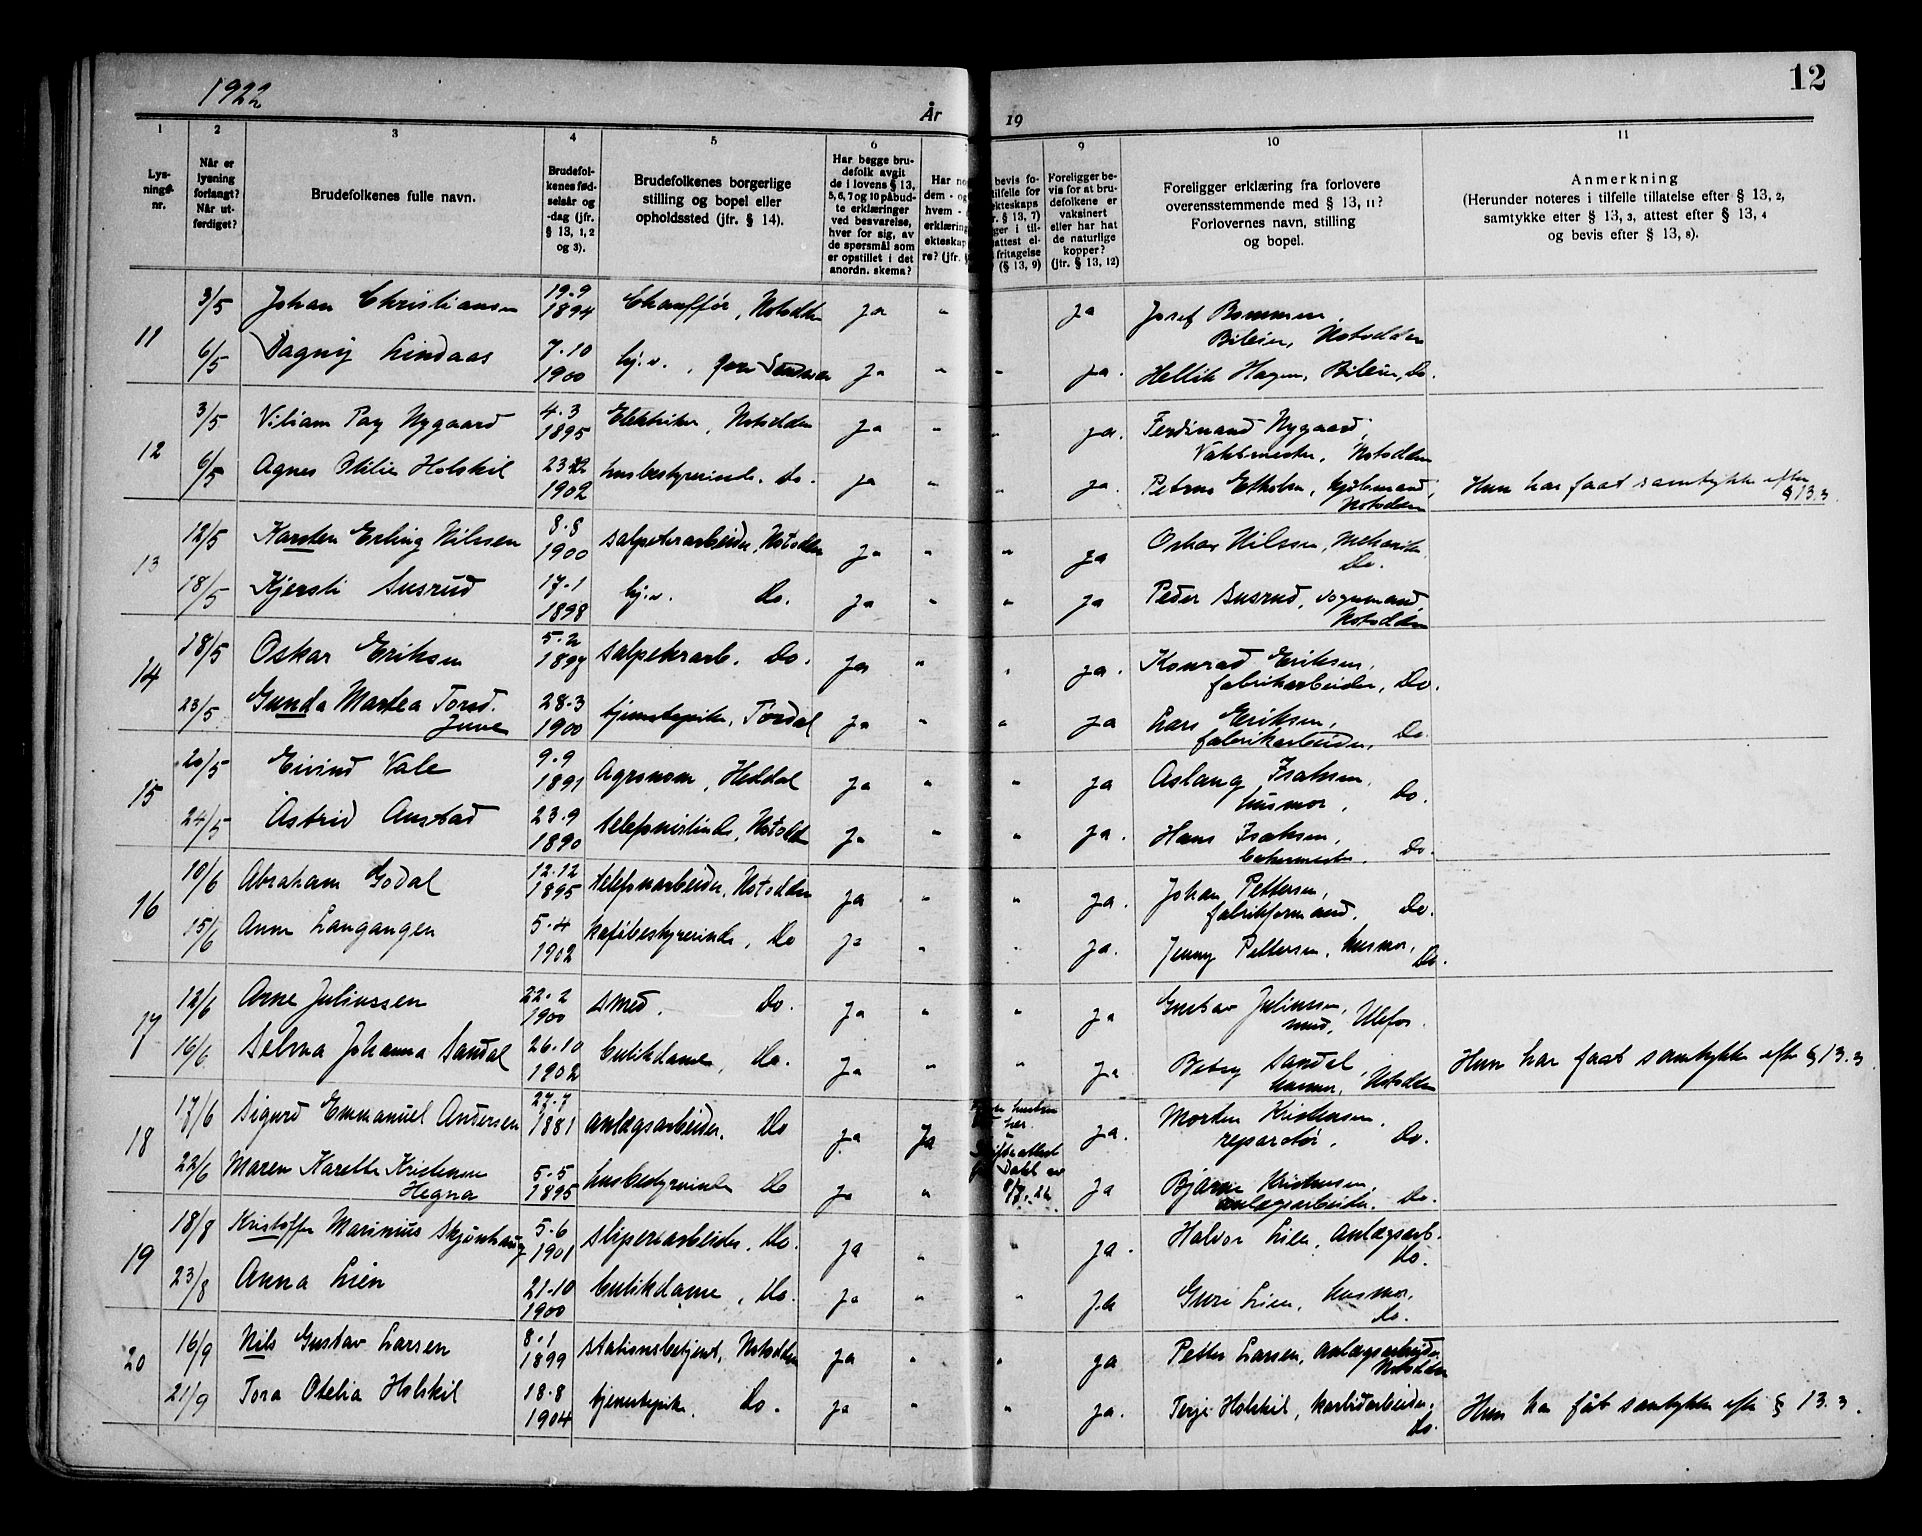 1922
År
19
12
1
2
3
4
5
6
9
10
11
Lys-
nings-
nr.
Når er
lysning
forlangt?
Når ut-
ferdiget?
Brudefolkenes fulle navn.
Brudefol-
kenes fød-
selsår og
-dag (jfr.
§ 13, 1, 2
og 3).
Brudefolkenes borgerlige
stilling og bopel eller
opholdssted (jfr. § 14).
Har begge bru-
defolk avgit
de i lovens § 13,
5, 6, 7 og 10 påbud-
te erklæringer
ved besvarelse,
hver for sig, av
de spørsmål som
er opstillet i det
anordn. skema?
Har no
dem - og
hvem -
erklæring
ektesкap
re? (jfr. §
bevis fo-
tilfelle for
ekteskaps
r. § 13, 7)
ger i til-
attest el-
fritagelse
(§ 13, 9)
Foreligger be-
vis for at bru-
defolkene er
vaksinert
eller har hat
de naturlige
kopper?
(jfr. § 13, 12)
Foreligger erklæring fra forlovere
overensstemmende med § 13, 11?
Forlovernes navn, stilling
og bopel.
Anmerkning
(Herunder noteres i tilfelle tillatelse efter § 13, 2,
samtykke efter § 13, 3, attest efter § 13, 4
og bevis efter § 13, 8).
11 3/5 Johan Christiansen 19.9 1894 Chauffør, Notodden ja " ja Josef Bommen,
Bileier, Notodden
6/5 Dagny Lindaas 7.10 1900 hj.v., ja " " ja. Hellik Hagen, Bileier, Do.
12 3/5 Viliam Pay Nygaard 4.3 1895 Elektriker, Notodden ja " " ja. Ferdinand Nygaard,
Vaktmester, Notodden
6/5 Agnes Otilie Holskil 23.12 1902 husbestyrerinde, Do. ja " " ja. Petrus kjøbmand, Hun har faat samtykke efter
Notodden § 13.3.
13 12/5 Karsten Erling Nilssen 8.8 1900 salpeterarbeider, Notodden ja " " ja Oskar Nilssen, mekaniker
Do.
18/5 Kjersti Susrud 17.1 1898 hj.v. Do. ja " " ja Peder Susrud, vognmand,
Notodden
14 18/5 Oskar Eriksen 5.2 1897 salpeterarb. Do. ja " " ja. Konrad Eriksen,
fabrikarbeider, Do.
23/5 Gunda Martea Torsd. 28.3 1900 tjenestepike, Tørdal ja " " ja Lars Eriksen,
Juve fabrikarbeider, Do.
15 20/5 Eivind Vale 9.9 1891 Agronom, Heddal ja " " ja Aslaug Isaksen,
husmor, Do.
24/5 Astrid Anstad 23.9 1890 telefonistinde, Notodden ja " " ja. Hans Isaksen,
bakermester, Do.
16 10/6 Abraham Godal 12.12 1895 telefonarbeider, Notodden ja " " ja. Johan Pettersen,
fabrikformand, Do.
15/6 Anne Langangen 5.4 1902 kafébestyrerinde, Do ja " " ja. Jenny Pettersen, husmor,
Do.
17 12/6 Arne Juliussen 22.2 1900 smed. Do. ja " " ja Gustav Juliussen,
smed, Ulefos.
16/6 Selma Johanna Sandal 26.10 1902 butikdame, Do. ja " " ja Betzy Sandal Hun har faat samtykke efter § 13.3
husmor, Notodden
18 17/6 Sigurd Emmanuel Andersen 27.7 1881 anlægsarbeider. Do ja Ja her. ja. Morten Kristensen,
reparatør. Do.
22/6 Maren Karette Kristensen 5.5 1895 husbestyrerinde Do ja " ja Bjarne Kristensen,
Hegna anlægsarbeider. Do.
19 18/8 Kristoffer Marinius Skjønhaug 5.6 1901 sliperiarbeider, Do. ja " " ja. Halvor Lien, anlægsarb.
Do.
23/8 Anna Lien 21.10 1900 butikdame, Do. ja " " ja Guri Lien, husmor,
Do.
20 16/9 Nils Gustav Larsen 8.1 1899 stationsbetjent, Notodden ja " " ja Petter Larsen, anlægsarbeider
Notodden
21/9 Tora Otelia Holskil 18.8 1904 tjenestepike. Do. ja " " ja. Terje Holskil, Hun har fåt samtykke efter § 13.3.
Do.